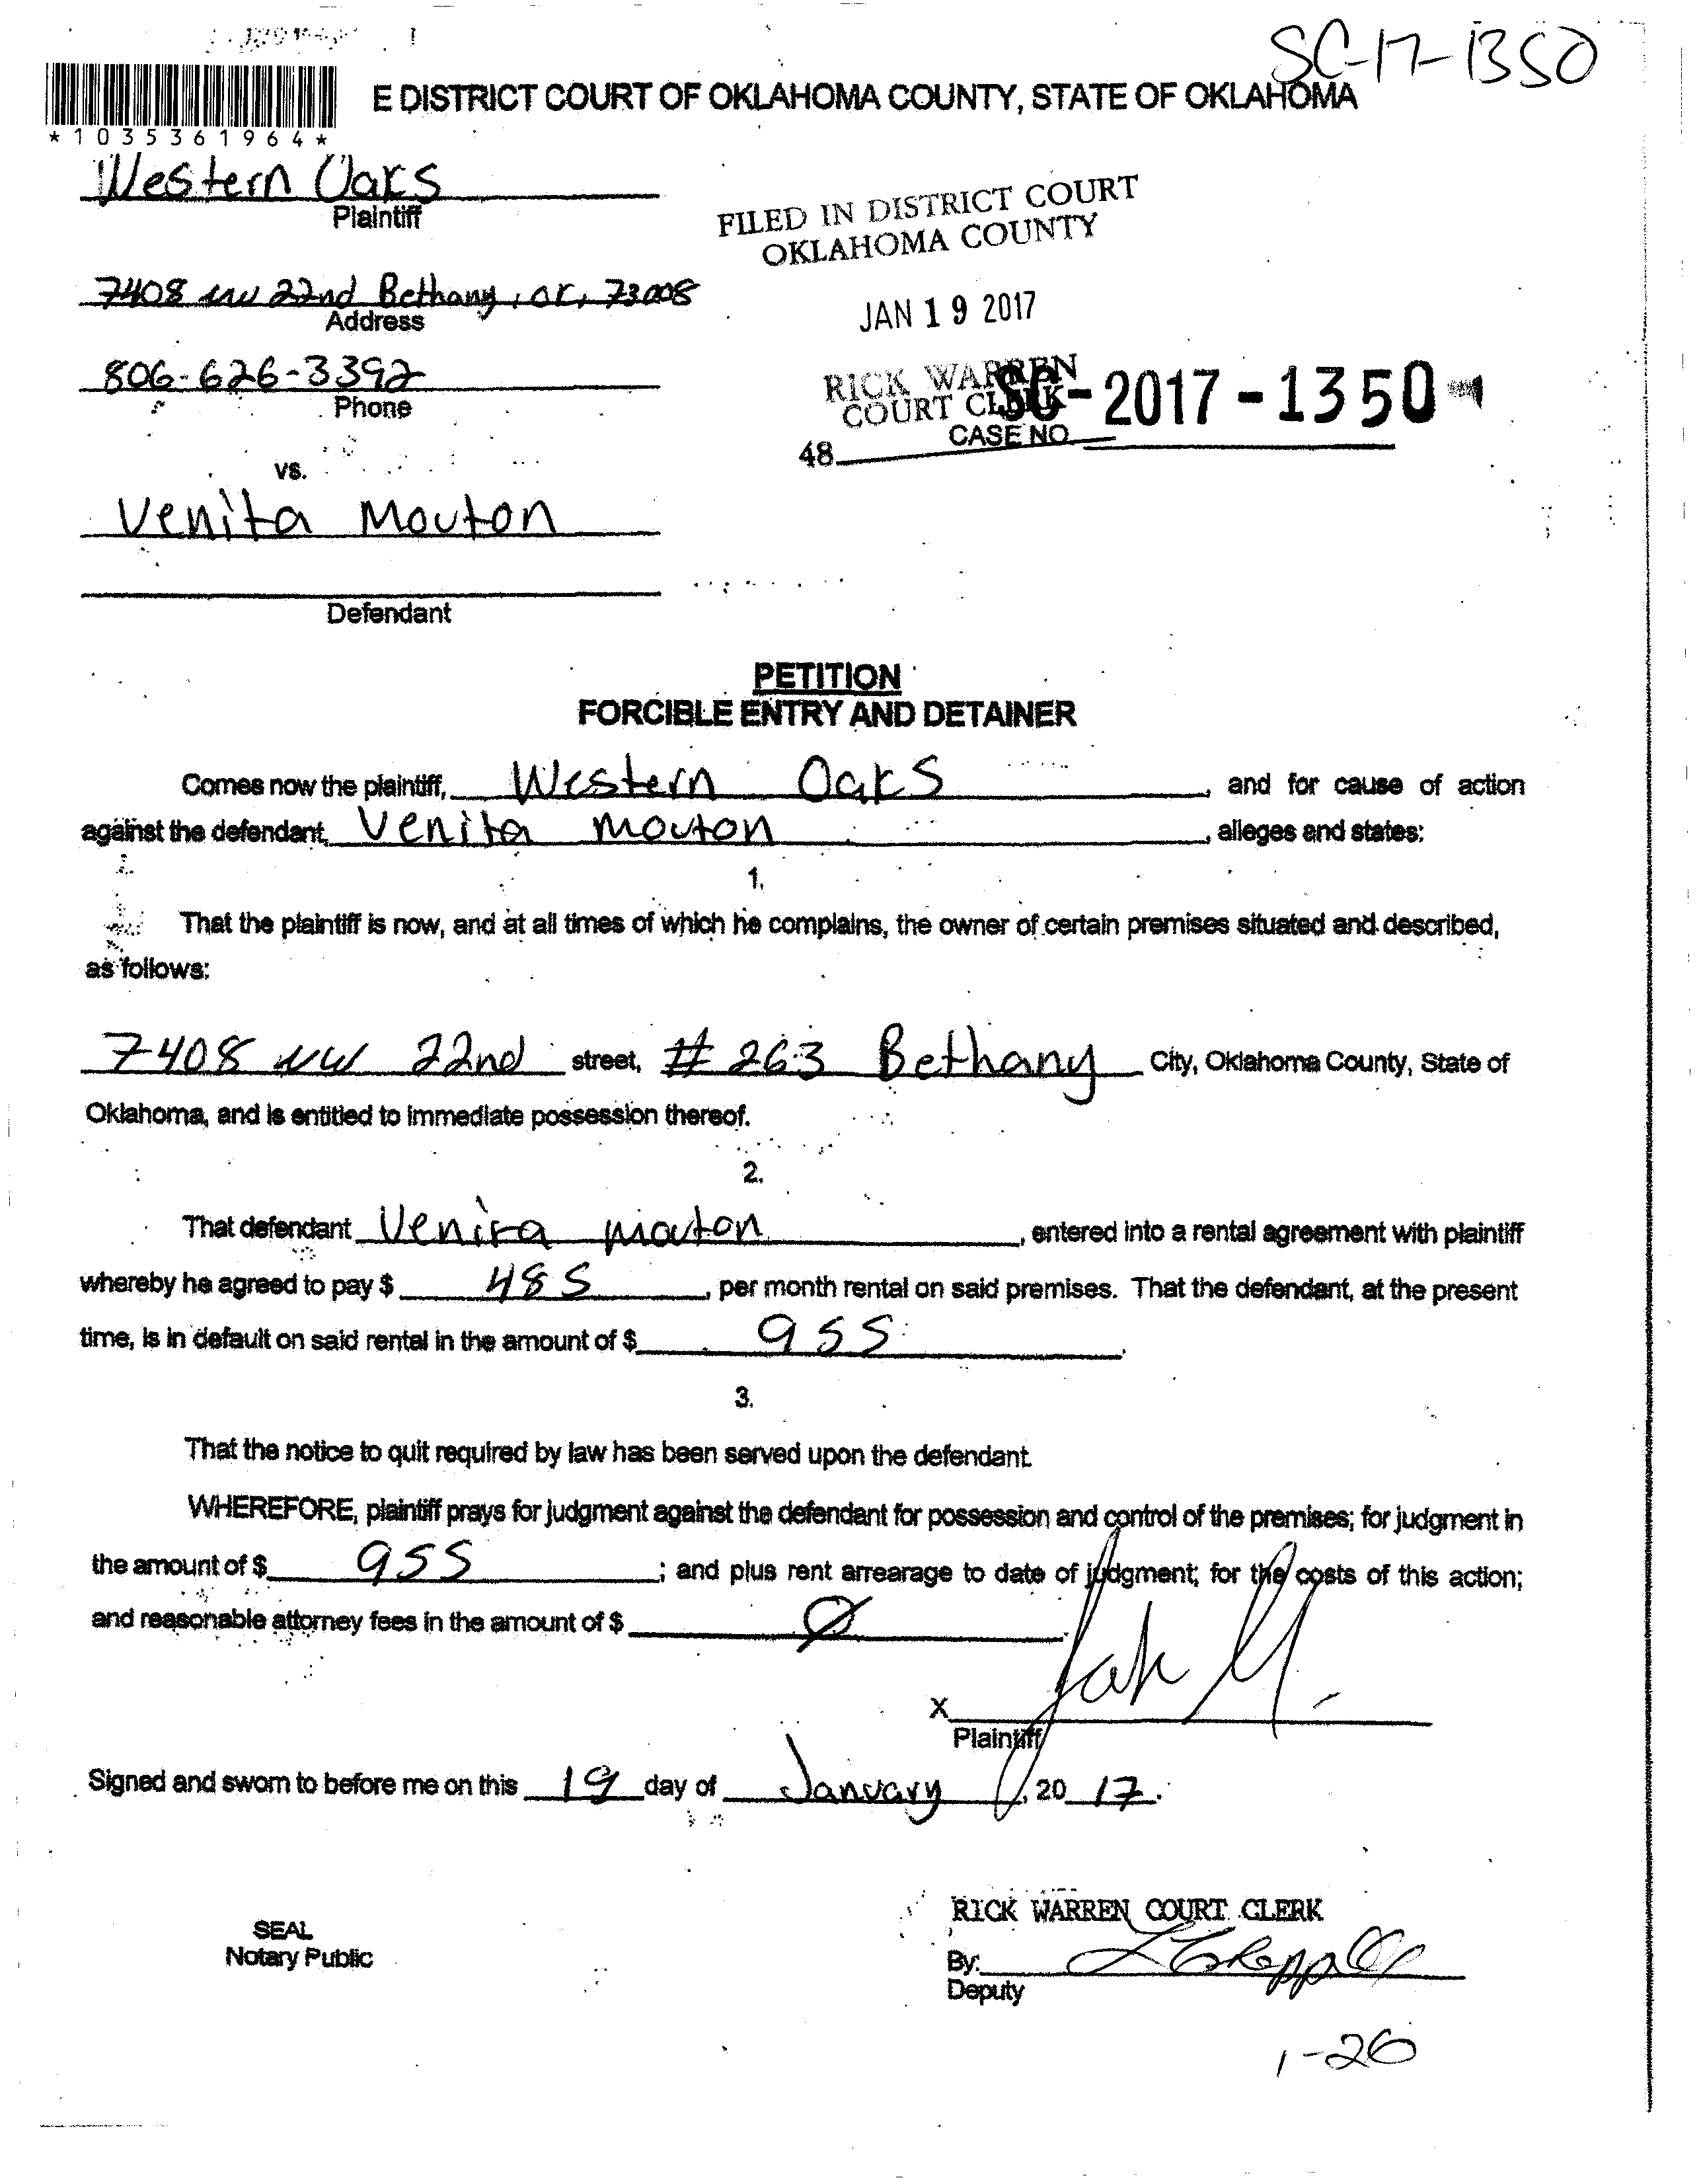 SC-17-1350
E DISTRICT COURT OF OKLAHOMA COUNTY, STATE OF OKLAHOMA
*1035361964*
Western Oaks
Plaintiff
FILED IN DISTRICT COURT
OKLAHOMA COUNTY
7408 NW 22nd Bethany, OK, 73008
Address
JAN 19 2017
806-626-3392
Phone
RICK WARREN
COURT CLERK
SC-2017-1350
48
CASE NO.
vs.
Venita Mouton
Defendant
PETITION
FORCIBLE ENTRY AND DETAINER
Comes now the plaintiff, Western Oaks, and for cause of action
against the defendant, Venita Mouton, alleges and states:
1.
That the plaintiff is now, and at all times of which he complains, the owner of certain premises situated and described,
as follows:
7408 NW 22nd street, # 263 Bethany City, Oklahoma County, State of
Oklahoma, and is entitled to immediate possession thereof.
2.
That defendant Venita Mouton, entered into a rental agreement with plaintiff
whereby he agreed to pay $ 485, per month rental on said premises. That the defendant, at the present
time, is in default on said rental in the amount of $ 955.
3.
That the notice to quit required by law has been served upon the defendant.
WHEREFORE, plaintiff prays for judgment against the defendant for possession and control of the premises; for judgment in
the amount of $ 955; and plus rent arrearage to date of judgment; for the costs of this action;
and reasonable attorney fees in the amount of $ Ø.
X
Plaintiff
Signed and sworn to before me on this 19 day of January, 20 17.
RICK WARREN COURT CLERK
SEAL
Notary Public
By:
Deputy
1-26